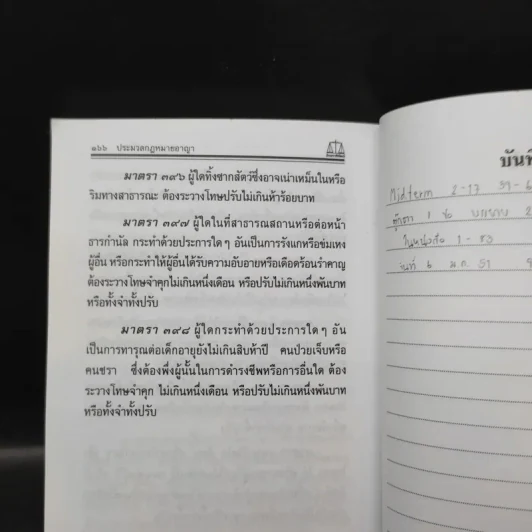 ๑๖๖ ประมวลกฎหมายอาญา
มาตรา ๓๙๖ ผู้ใดทิ้งซากสัตว์ซึ่งอาจเน่าเหม็นในหรือ
ริมทางสาธารณะ ต้องระวางโทษปรับไม่เกินห้าร้อยบาท
มาตรา ๓๙๗ ผู้ใดในที่สาธารณสถานหรือต่อหน้า
ธารกำนัล กระทำด้วยประการใดๆ อันเป็นการรังแกหรือข่มเหง
ผู้อื่น หรือกระทำให้ผู้อื่นได้รับความอับอายหรือเดือดร้อนรำคาญ
ต้องระวางโทษจำคุกไม่เกินหนึ่งเดือน หรือปรับไม่เกินหนึ่งพันบาท
หรือทั้งจำทั้งปรับ
มาตรา ๓๙๘ ผู้ใดกระทำด้วยประการใดๆ อัน
เป็นการทารุณต่อเด็กอายุยังไม่เกินสิบห้าปี คนป่วยเจ็บหรือ
คนชรา ซึ่งต้องพึ่งผู้นั้นในการดำรงชีพหรือการอื่นใด ต้อง
ระวางโทษจำคุก ไม่เกินหนึ่งเดือน หรือปรับไม่เกินหนึ่งพันบาท
หรือทั้งจำทั้งปรับ
Midterm 2-17
1 ข้อ
1 - 83
วันที่ 6 ม.ค. 51